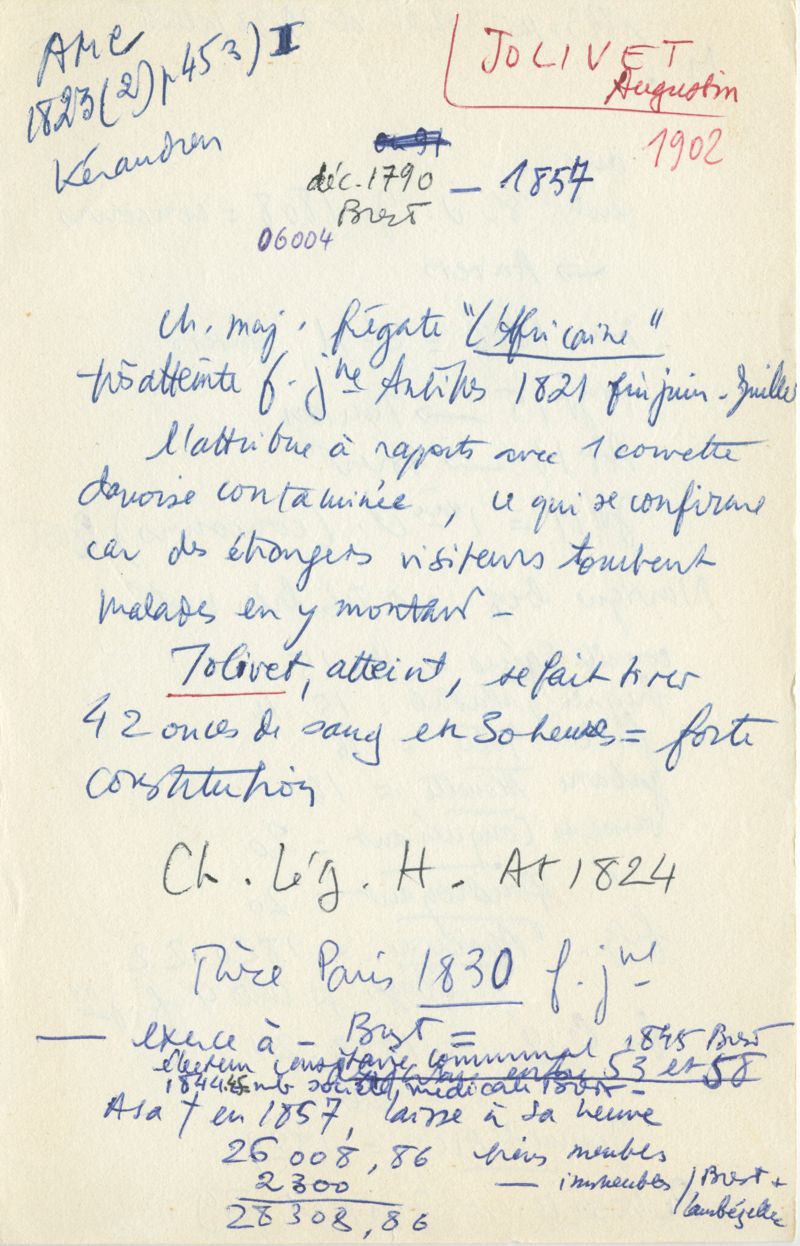 AMC
1823(2) p 453) I
Kérandren
JOLIVET
Augustin
1902
déc. 1790 — 1857
Brest
06004
Ch. maj. frégate "l'Africaine"
très atteinte f. jne Antilles 1821 fin juin - Juillet
l'attribue à rapports avec 1 corvette
danoise contaminée, ce qui se confirme
car des étrangers visiteurs tombent
malades en y montant -
Jolivet, atteint, se fait tirer
42 onces de sang en 30 heures = forte
constitution
Ch. Lég. H. At 1824
Thèse Paris 1830 f. jne
— exerce à - Brest =
électeur censitaire communal 1845 Brest
entre 53 et 58
1844.45 mb société médicale Brest -
A sa † en 1857, laisse à sa veuve
26 008,86 biens meubles
2300 — immeubles / Brest +
Lambézellec
28308,86